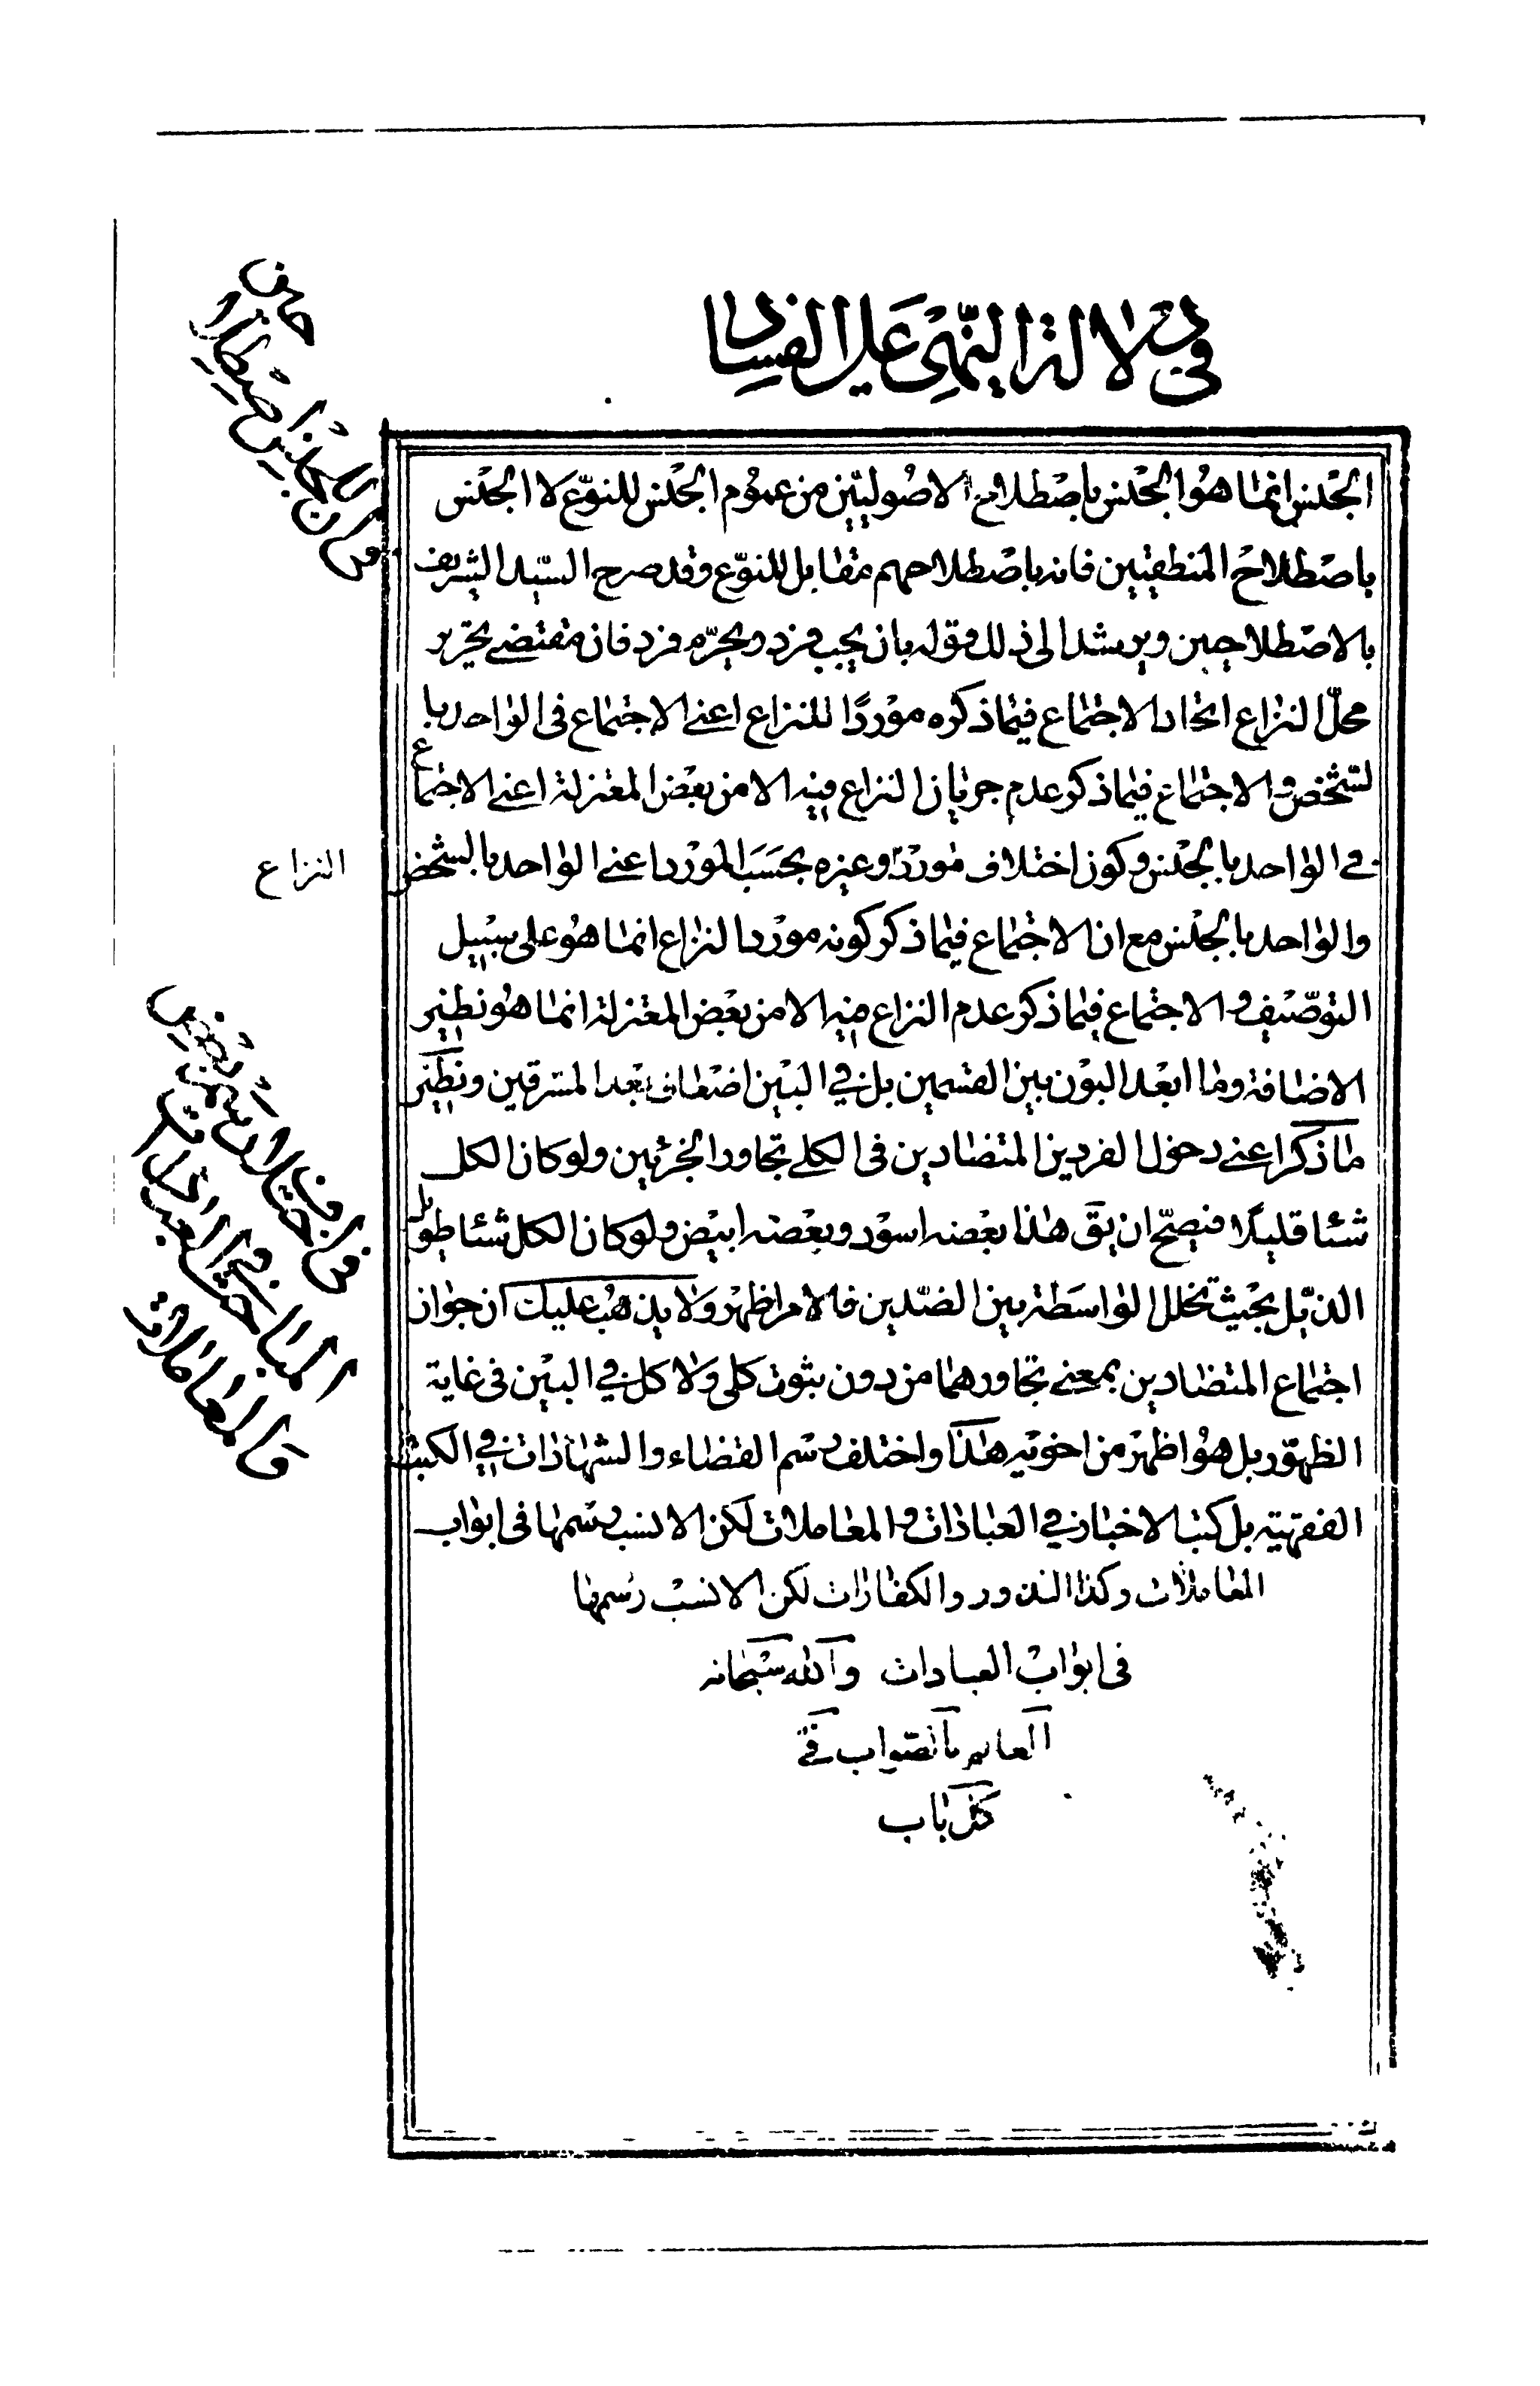 في دلالة النهي على الفساد
الجنس انما هو الجنس باصطلاح الاصوليين من عموم الجنس للنوع لا الجنس
باصطلاح المنطقيين فانه باصطلاحهم مقابل للنوع وقد صرح السيد الشريف
بالاصطلاحين ويرشد الى ذلك قوله بان يجب فرد ويحرم فرد فان مقتضى تحرير
محل النزاع اتحاد الاجتماع فيما ذكره موردا للنزاع اعنى الاجتماع فى الواحد با
لشخص والاجتماع فيما ذكر عدم جريان النزاع فيه الا من بعض المعتزلة اعنى الاجتماع
في الواحد بالجنس وكون اختلاف مورد وغيره بحسب المورد اعنى الواحد بالشخص
النزاع
والواحد بالجنس مع ان الاجتماع فيما ذكر كونه مورد النزاع انما هو على سبيل
التوصيف والاجتماع فيما ذكر عدم النزاع فيه الا من بعض المعتزلة انما هو نظير
الاضافة وما ابعد البون بين القسمين بل في البين اضعاف بعد المشرقين ونظير
ما ذكر اعنى دخول الفردين المتضادين فى الكلى تجاور الجزئين ولو كان الكل
شئا قليلا فيصح ان يق هذا بعضه اسود وبعضه ابيض ولو كان الكل شئا طويل
الذيل بحيث تخلل الواسطة بين الضدين فالامر اظهر ولا يذهب عليك ان جواز
اجتماع المتضادين بمعنى تجاورهما من دون ثبوت كلى ولا كل في البين فى غاية
الظهور بل هو اظهر من اخويه هذا واختلف رسم القضاء والشهادات في الكتب
الفقهية بل كتب الاخبار في العبادات والمعاملات لكن الانسب رسمها فى ابواب
المعاملات وكذا النذور والكفارات لكن الانسب رسمها
فى ابواب العبادات والله سبحانه
العالم بالصواب في
كل باب